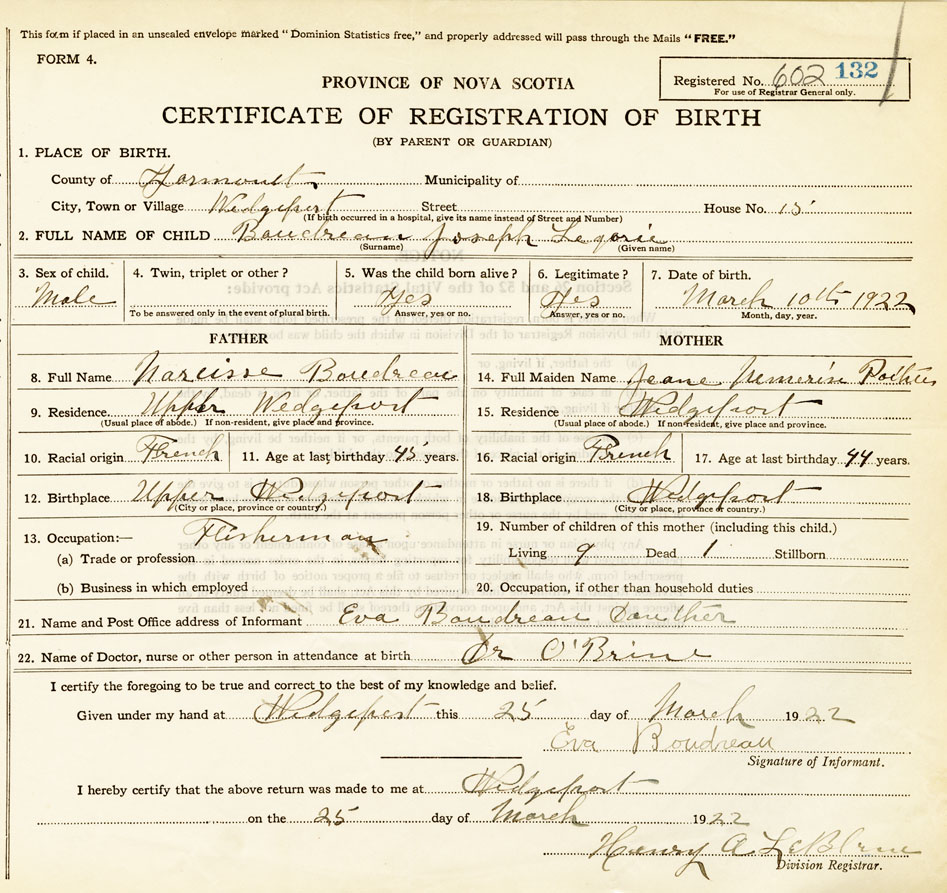 This form if placed in an unsealed envelope marked “Dominion Statistics free,” and properly addressed will pass through the Mails “FREE.”
FORM 4.
Registered No. 602 132
For use of Registrar General only.
PROVINCE OF NOVA SCOTIA
CERTIFICATE OF REGISTRATION OF BIRTH
(BY PARENT OR GUARDIAN)
1. PLACE OF BIRTH.
County of Yarmouth Municipality of
City, Town or Village Wedgeport Street House No. 15
(If birth occurred in a hospital, give its name instead of Street and Number)
2. FULL NAME OF CHILD Boudreau Joseph Legorie
(Surname) (Given name)
3. Sex of child. 4. Twin, triplet or other? 5. Was the child born alive? 6. Legitimate? 7. Date of birth.
Male Yes Yes March 10th 1922
To be answered only in the event of plural birth. Answer, yes or no. Answer, yes or no. Month, day, year.
FATHER MOTHER
8. Full Name Narcisse Boudreau 14. Full Maiden Name Jeane
9. Residence Upper Wedgeport 15. Residence Wedgeport
(Usual place of abode.) If non-resident, give place and province. (Usual place of abode.) If non-resident, give place and province.
10. Racial origin French 11. Age at last birthday 45 years. 16. Racial origin French 17. Age at last birthday 44 years.
12. Birthplace Upper Wedgeport 18. Birthplace Wedgeport
(City or place, province or country.) (City or place, province or country.)
13. Occupation:— Fisherman 19. Number of children of this mother (including this child.)
(a) Trade or profession Living 9 Dead 1 Stillborn
(b) Business in which employed 20. Occupation, if other than household duties
21. Name and Post Office address of Informant Eva Boudreau Douther
22. Name of Doctor, nurse or other person in attendance at birth Dr O'Brine
I certify the foregoing to be true and correct to the best of my knowledge and belief.
Given under my hand at Wedgeport this 25 day of March 1922
Eva Boudreau
Signature of Informant.
I hereby certify that the above return was made to me at Wedgeport
on the 25 day of March 1922
Henry A LeBlanc
Division Registrar.